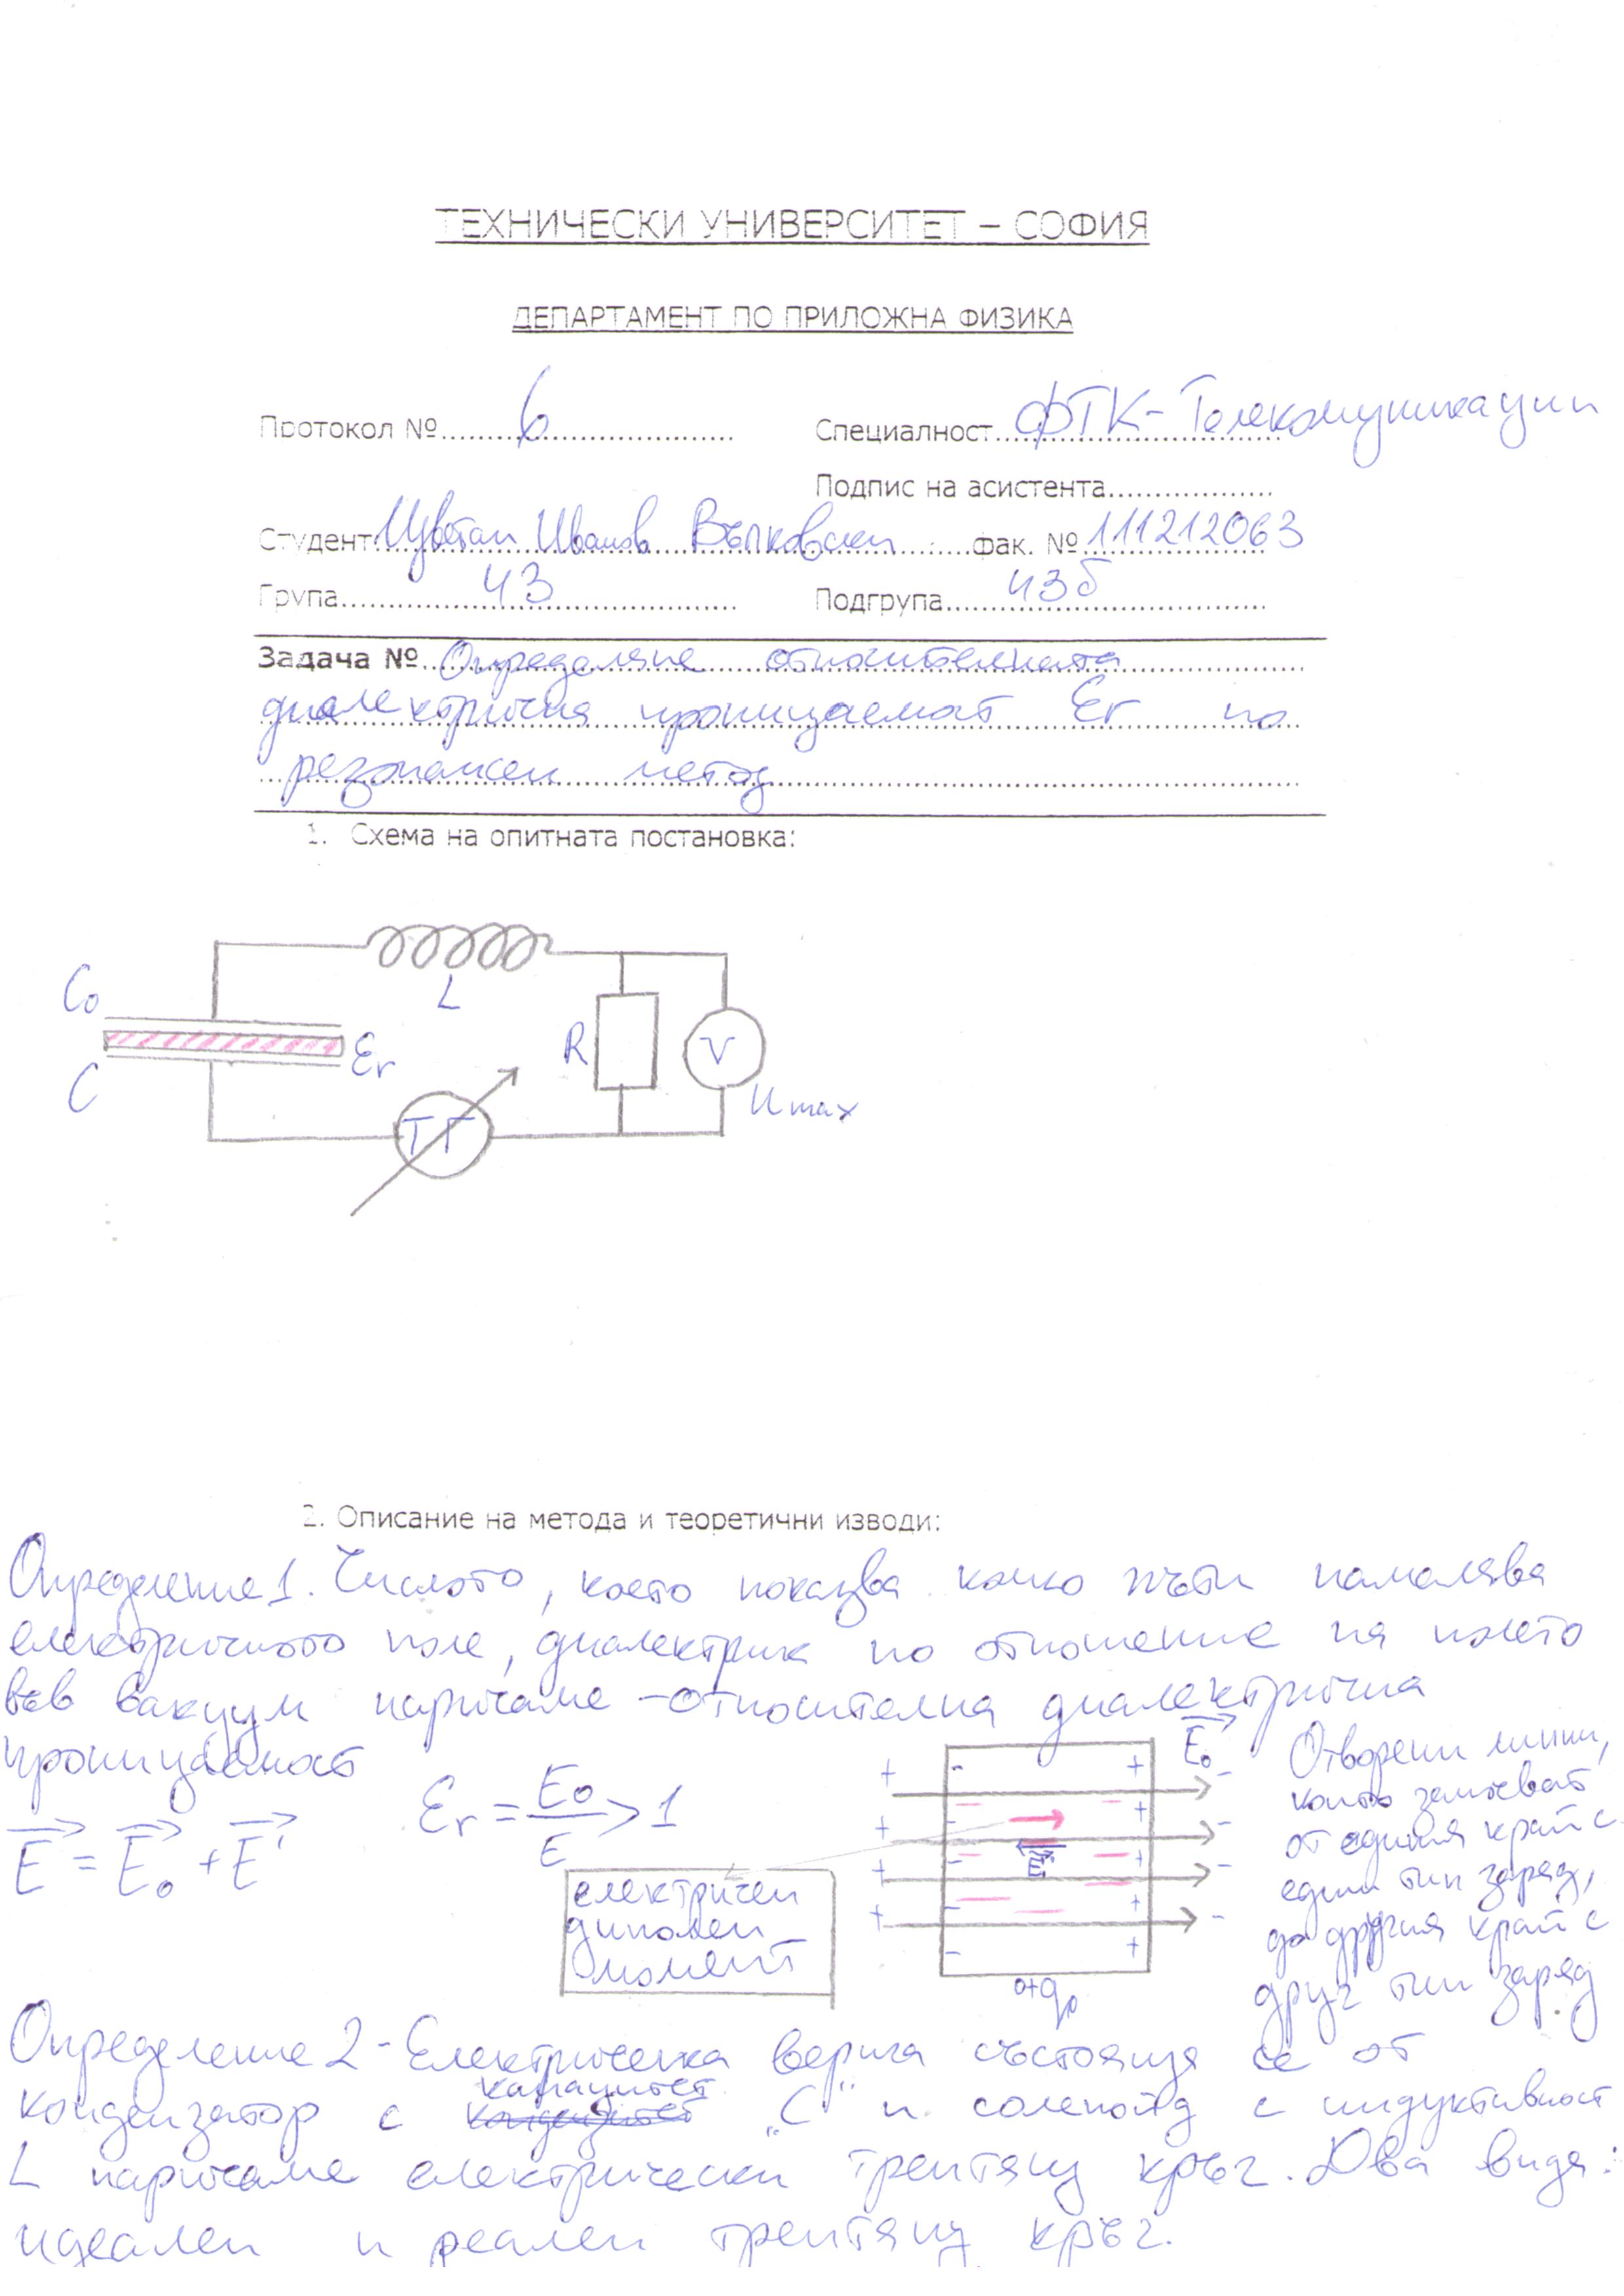 ТЕХНИЧЕСКИ УНИВЕРСИТЕТ – СОФИЯ
ДЕПАРТАМЕНТ ПО ПРИЛОЖНА ФИЗИКА
Протокол №.....6..... Специалност ФТК - Телекомуникации
Подпис на асистента...................
Студент: Цветан Иванов Вълковски фак. № 111212063
Група.....43..... Подгрупа.....43б.....
Задача № Определяне относителната
диалектрична проницаемост Er по
резонансен метод
1. Схема на опитната постановка:
L
C₀
R
V
Er
C
Umax
ТГ
2. Описание на метода и теоретични изводи:
Определение 1. Числото, което показва колко пъти намалява
електричното поле, диалектрик по отношение на полето
във вакуум наричаме - относителна диалектрична
проницаемост
Er = E₀/E > 1
E = E₀ + E'
E₀
E'
електричен
диполен
момент
Отворени линии,
които започват
от единия край с
един тип заряд,
до другия край с
друг тип заряд
0+q₀
Определение 2 - Електрическа верига състояща се от
капацитет
кондензатор с "C" и соленоид с индуктивност
L наричаме електрически трептящ кръг. Два вида:
идеален и реален трептящ кръг.